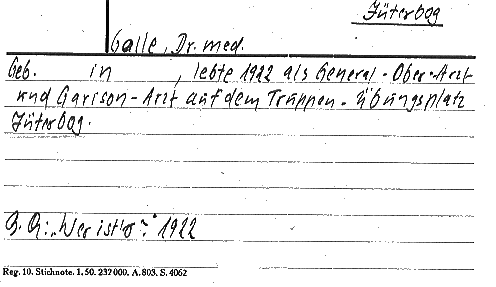 Jüterbog
Galle, Dr. med.
Geb. in , lebte 1922 als General-Ober-Arzt
und Garison-Arzt auf dem Truppen-Übungsplatz
Jüterbog.
"Wer ist's?" 1922
Reg. 10. Stichnote. 1. 50. 232000. A. 803. S. 4062